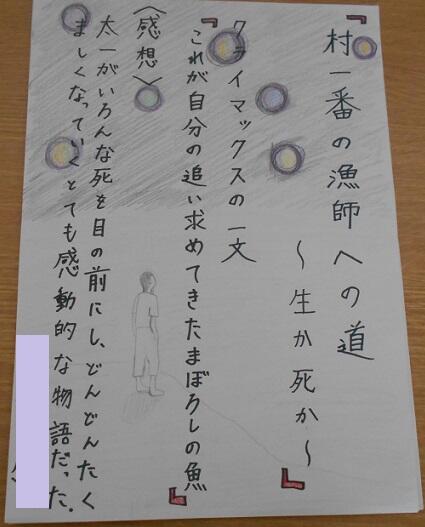 「村一番の漁師への道
～生か死か～」
クライマックスの一文
「これが自分の追い求めてきたまぼろしの魚」
〈感想〉
太一がいろんな死を目の前にし、どんどんたく
ましくなっていくとても感動的な物語だった。